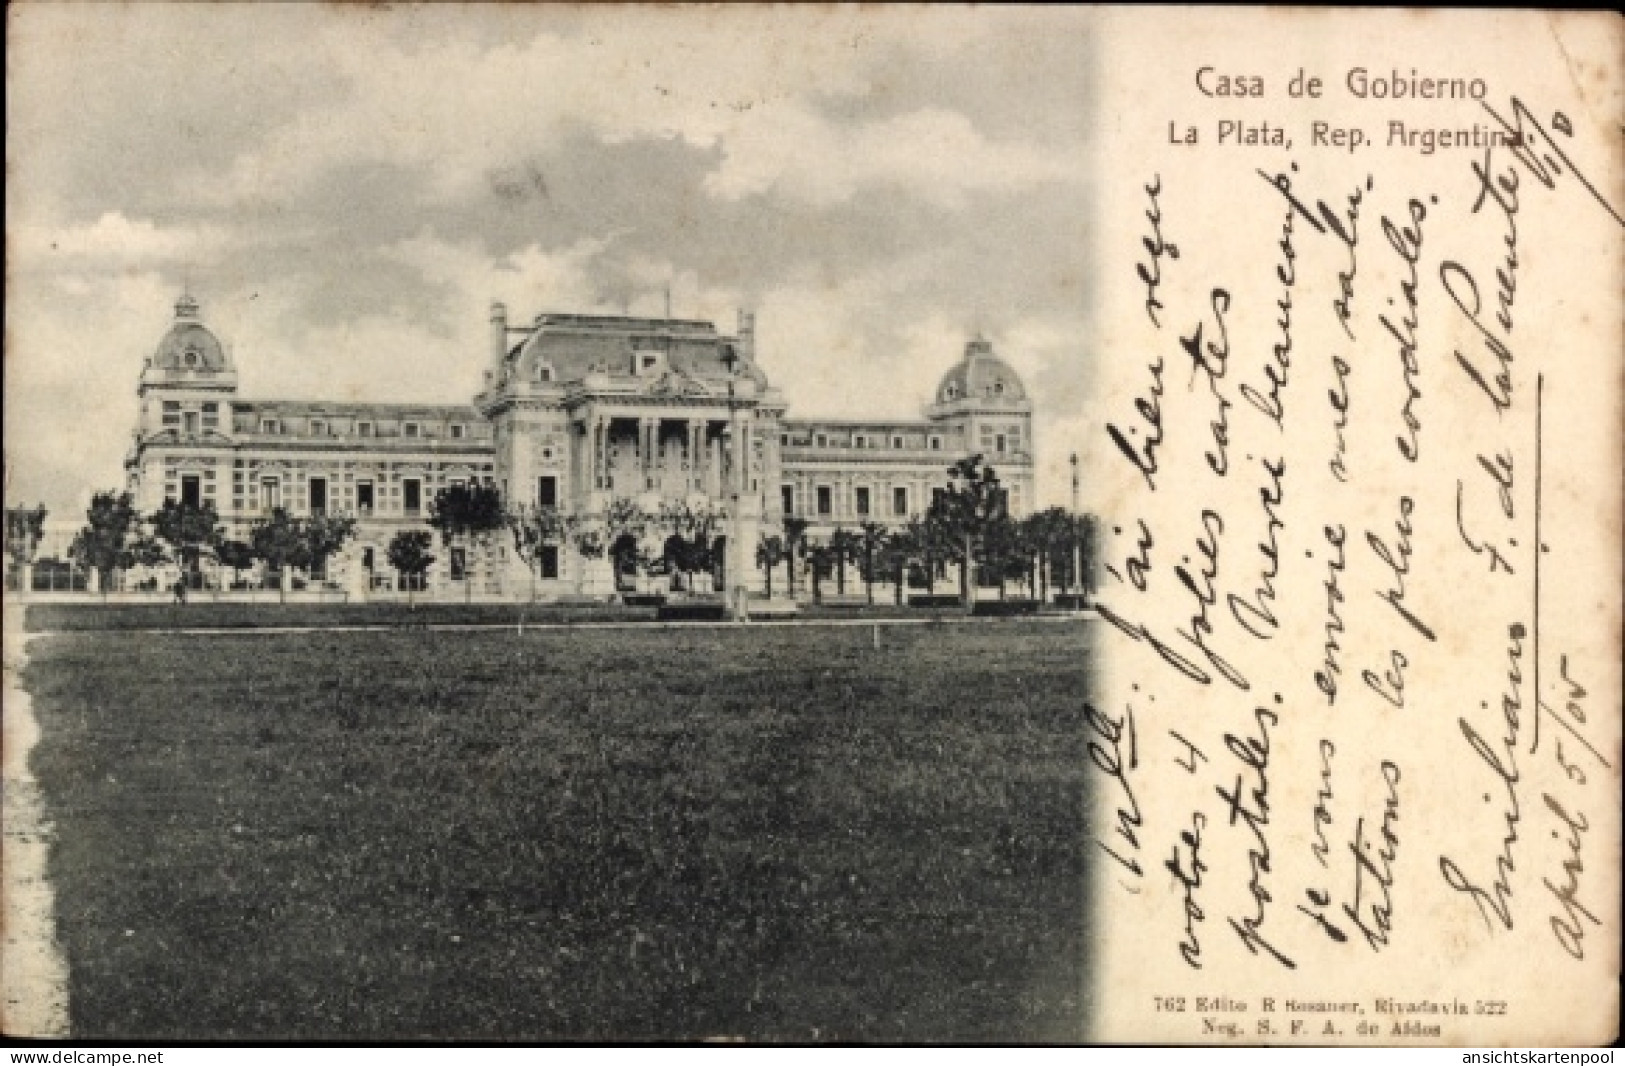 Casa de Gobierno
La Plata, Rep. Argentina.
Mlle: J'ai bien reçu
votres 4 jolies cartes
postales. Merci beaucoup.
je vous envoie mes salu-
tations les plus cordiales.
Emiliano F. de la Puente
april 5/05
762 Edito R Rosauer, Rivadavia 522
Neg. S. F. A. de Aldos
delcampe.net
ansichtskartenpool